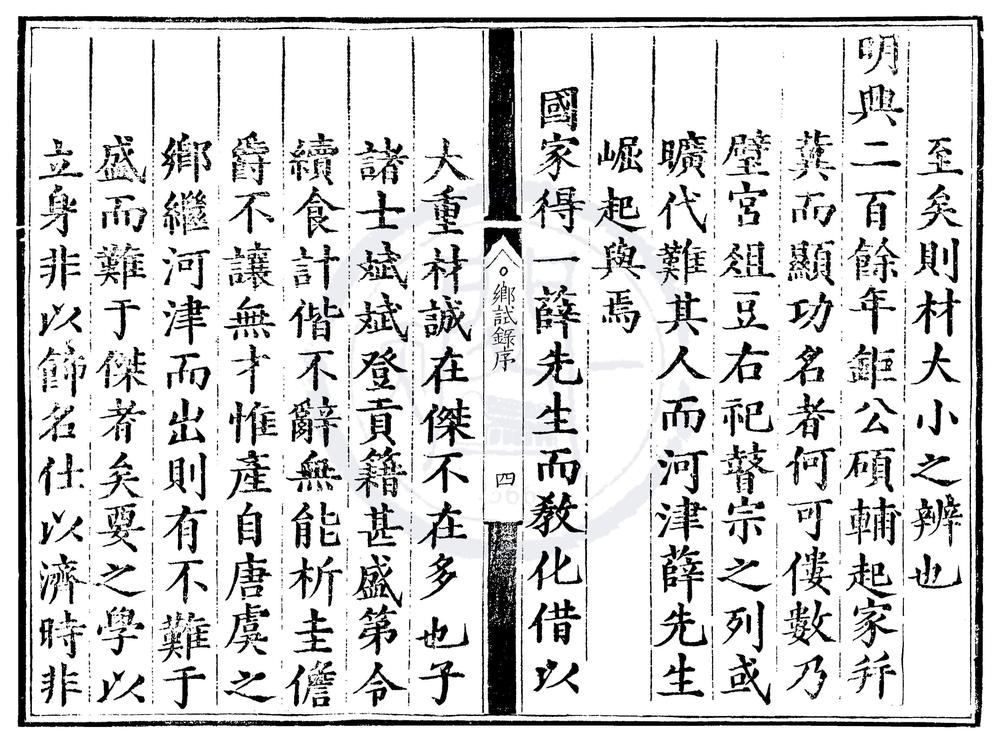 至矣則材大小之辨也
明興二百餘年鉅公碩輔起家幷
冀而顯功名者何可僂數乃
璧宮俎豆右祀瞽宗之列或
曠代難其人而河津薛先生
崛起與焉
國家得一薛先生而教化借以
鄉試錄序
四
大重材誠在傑不在多也子
諸士斌斌登貢籍甚盛第令
續食計偕不辭無能析圭儋
爵不讓無才惟產自唐虞之
鄉繼河津而出則有不難于
盛而難于傑者矣要之學以
立身非以飾名仕以濟時非